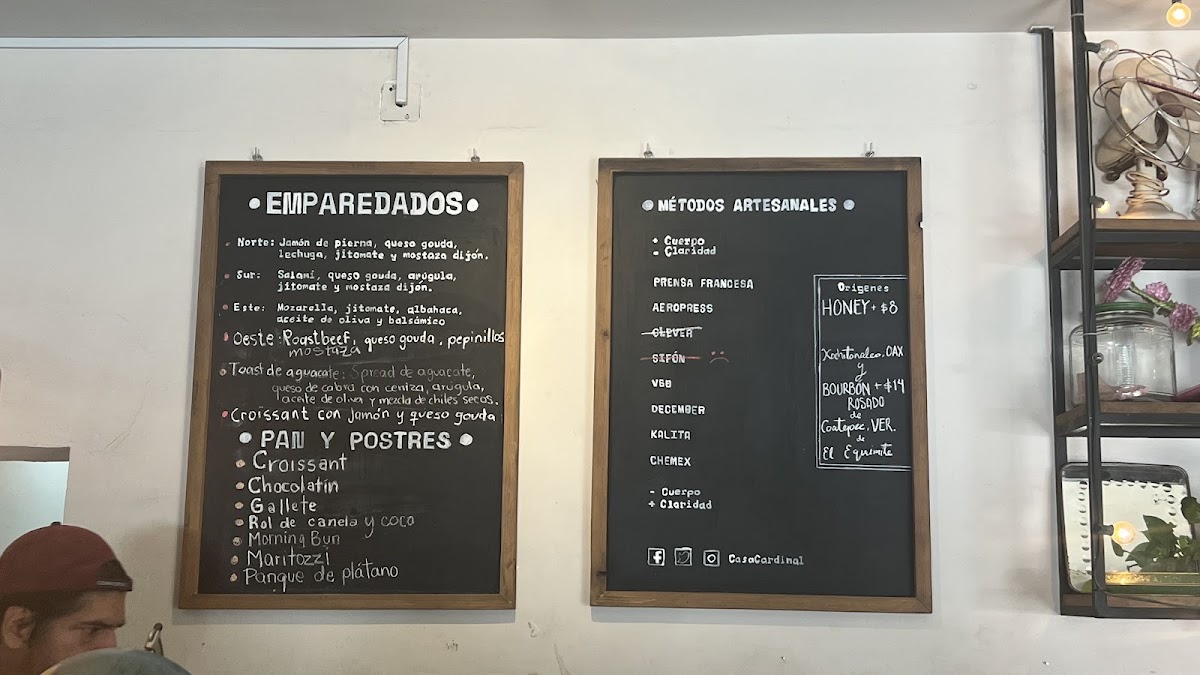 EMPAREDADOS
Norte: Jamón de pierna, queso gouda,
lechuga, jitomate y mostaza dijón.
Sur: Salami, queso gouda, arúgula,
jitomate y mostaza dijón.
Este: Mozarella, jitomate, albahaca,
aceite de oliva y balsámico
Oeste: Roastbeef, queso gouda, pepinillos
mostaza
Toast de aguacate: Spread de aguacate,
queso de cabra con ceniza, arúgula,
aceite de oliva y mezcla de chiles secos.
Croissant con Jamón y queso gouda
PAN Y POSTRES
Croissant
Chocolatín
Gallete
Rol de canela y coco
Morning Bun
Maritozzi
Panque de plátano
MÉTODOS ARTESANALES
+ Cuerpo
- Claridad
PRENSA FRANCESA
AEROPRESS
CLEVER
SIFÓN
V60
DECEMBER
KALITA
CHEMEX
- Cuerpo
+ Claridad
CasaCardinal
Orígenes
HONEY + $8
OAX
y
BOURBON + $14
ROSADO
de
Coatepec, VER.
de
El Equimite